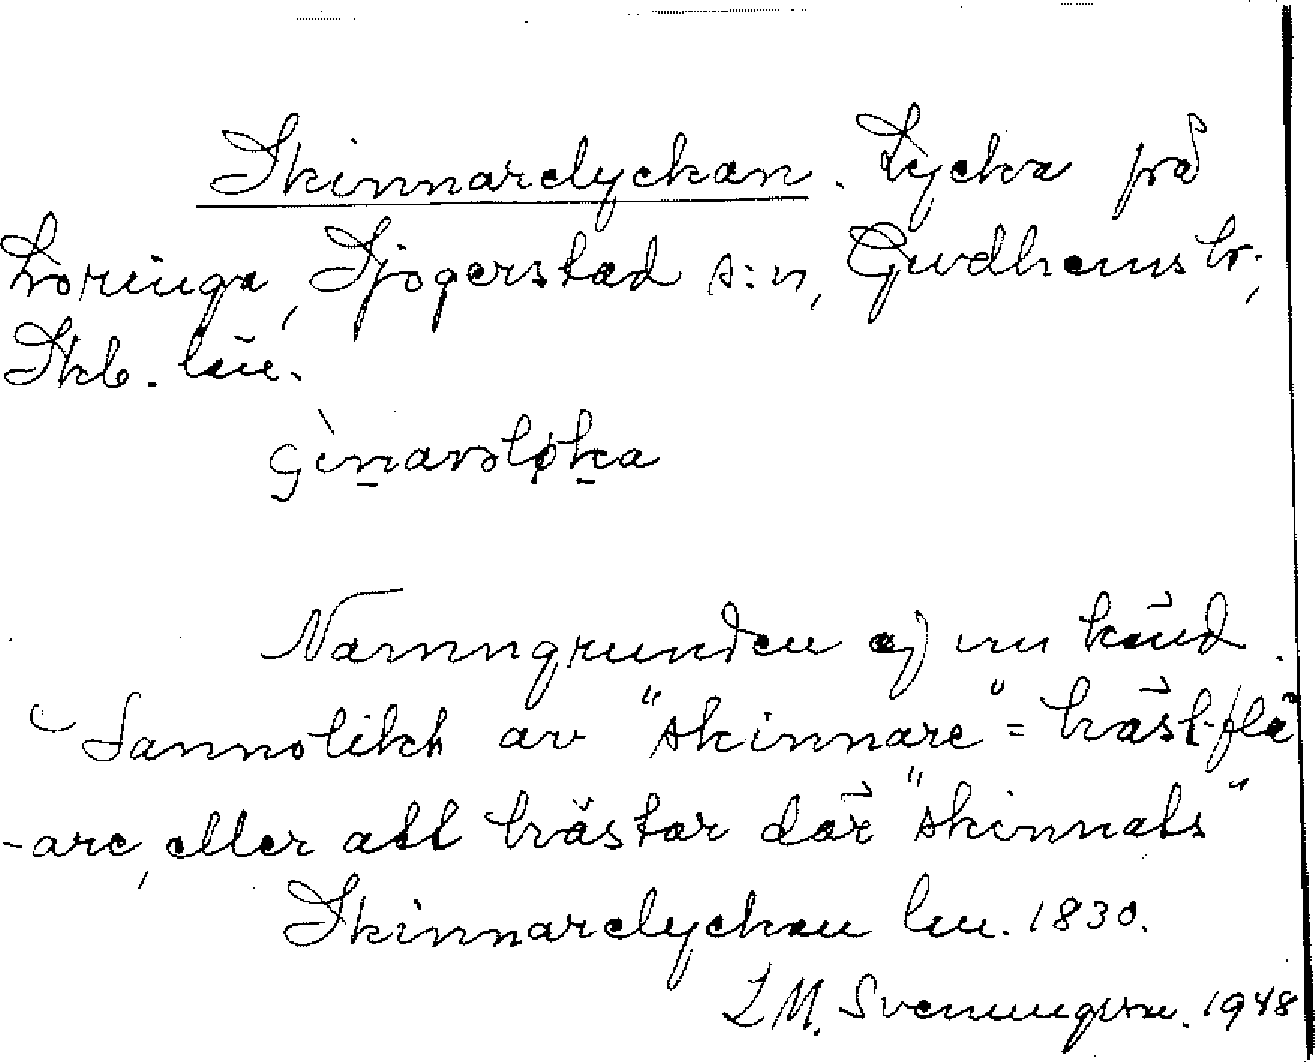 Skinnarelyckan. Lycka på
Loringa, Sjogerstad s:n, Gudhems hr.,
Skb. län.
Namngrunden ej nu känd.
Sannolikt av "skinnare" = häst-flå
-are, eller att hästar där "skinnats"
Skinnarelyckan lm. 1830.
L M. Svenungsson. 1948